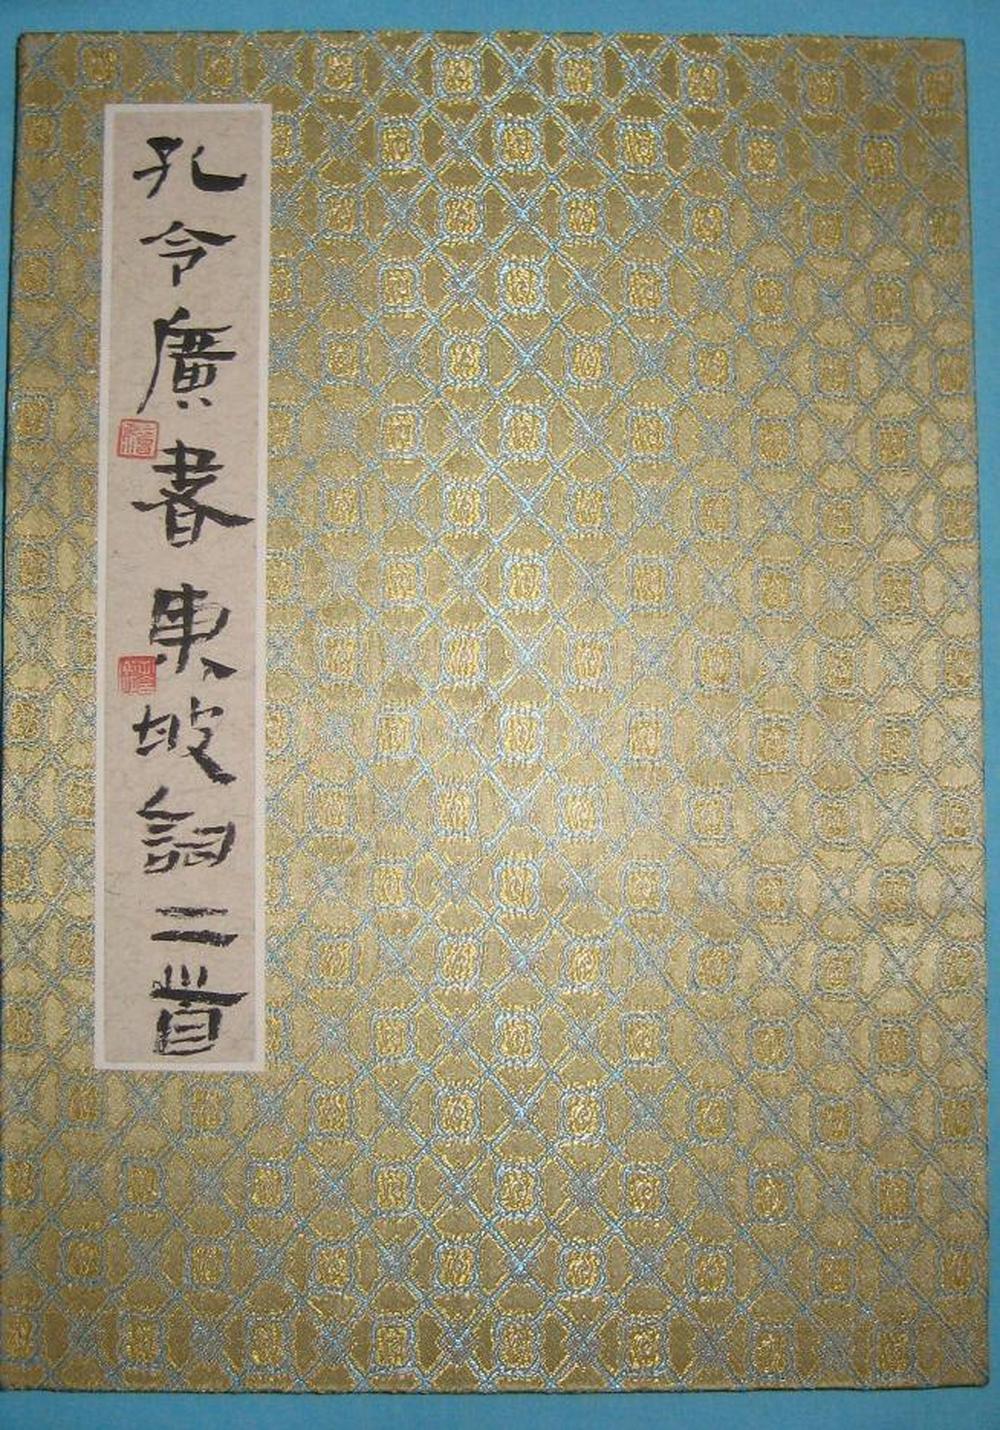 孔令廣書東坡詞二首